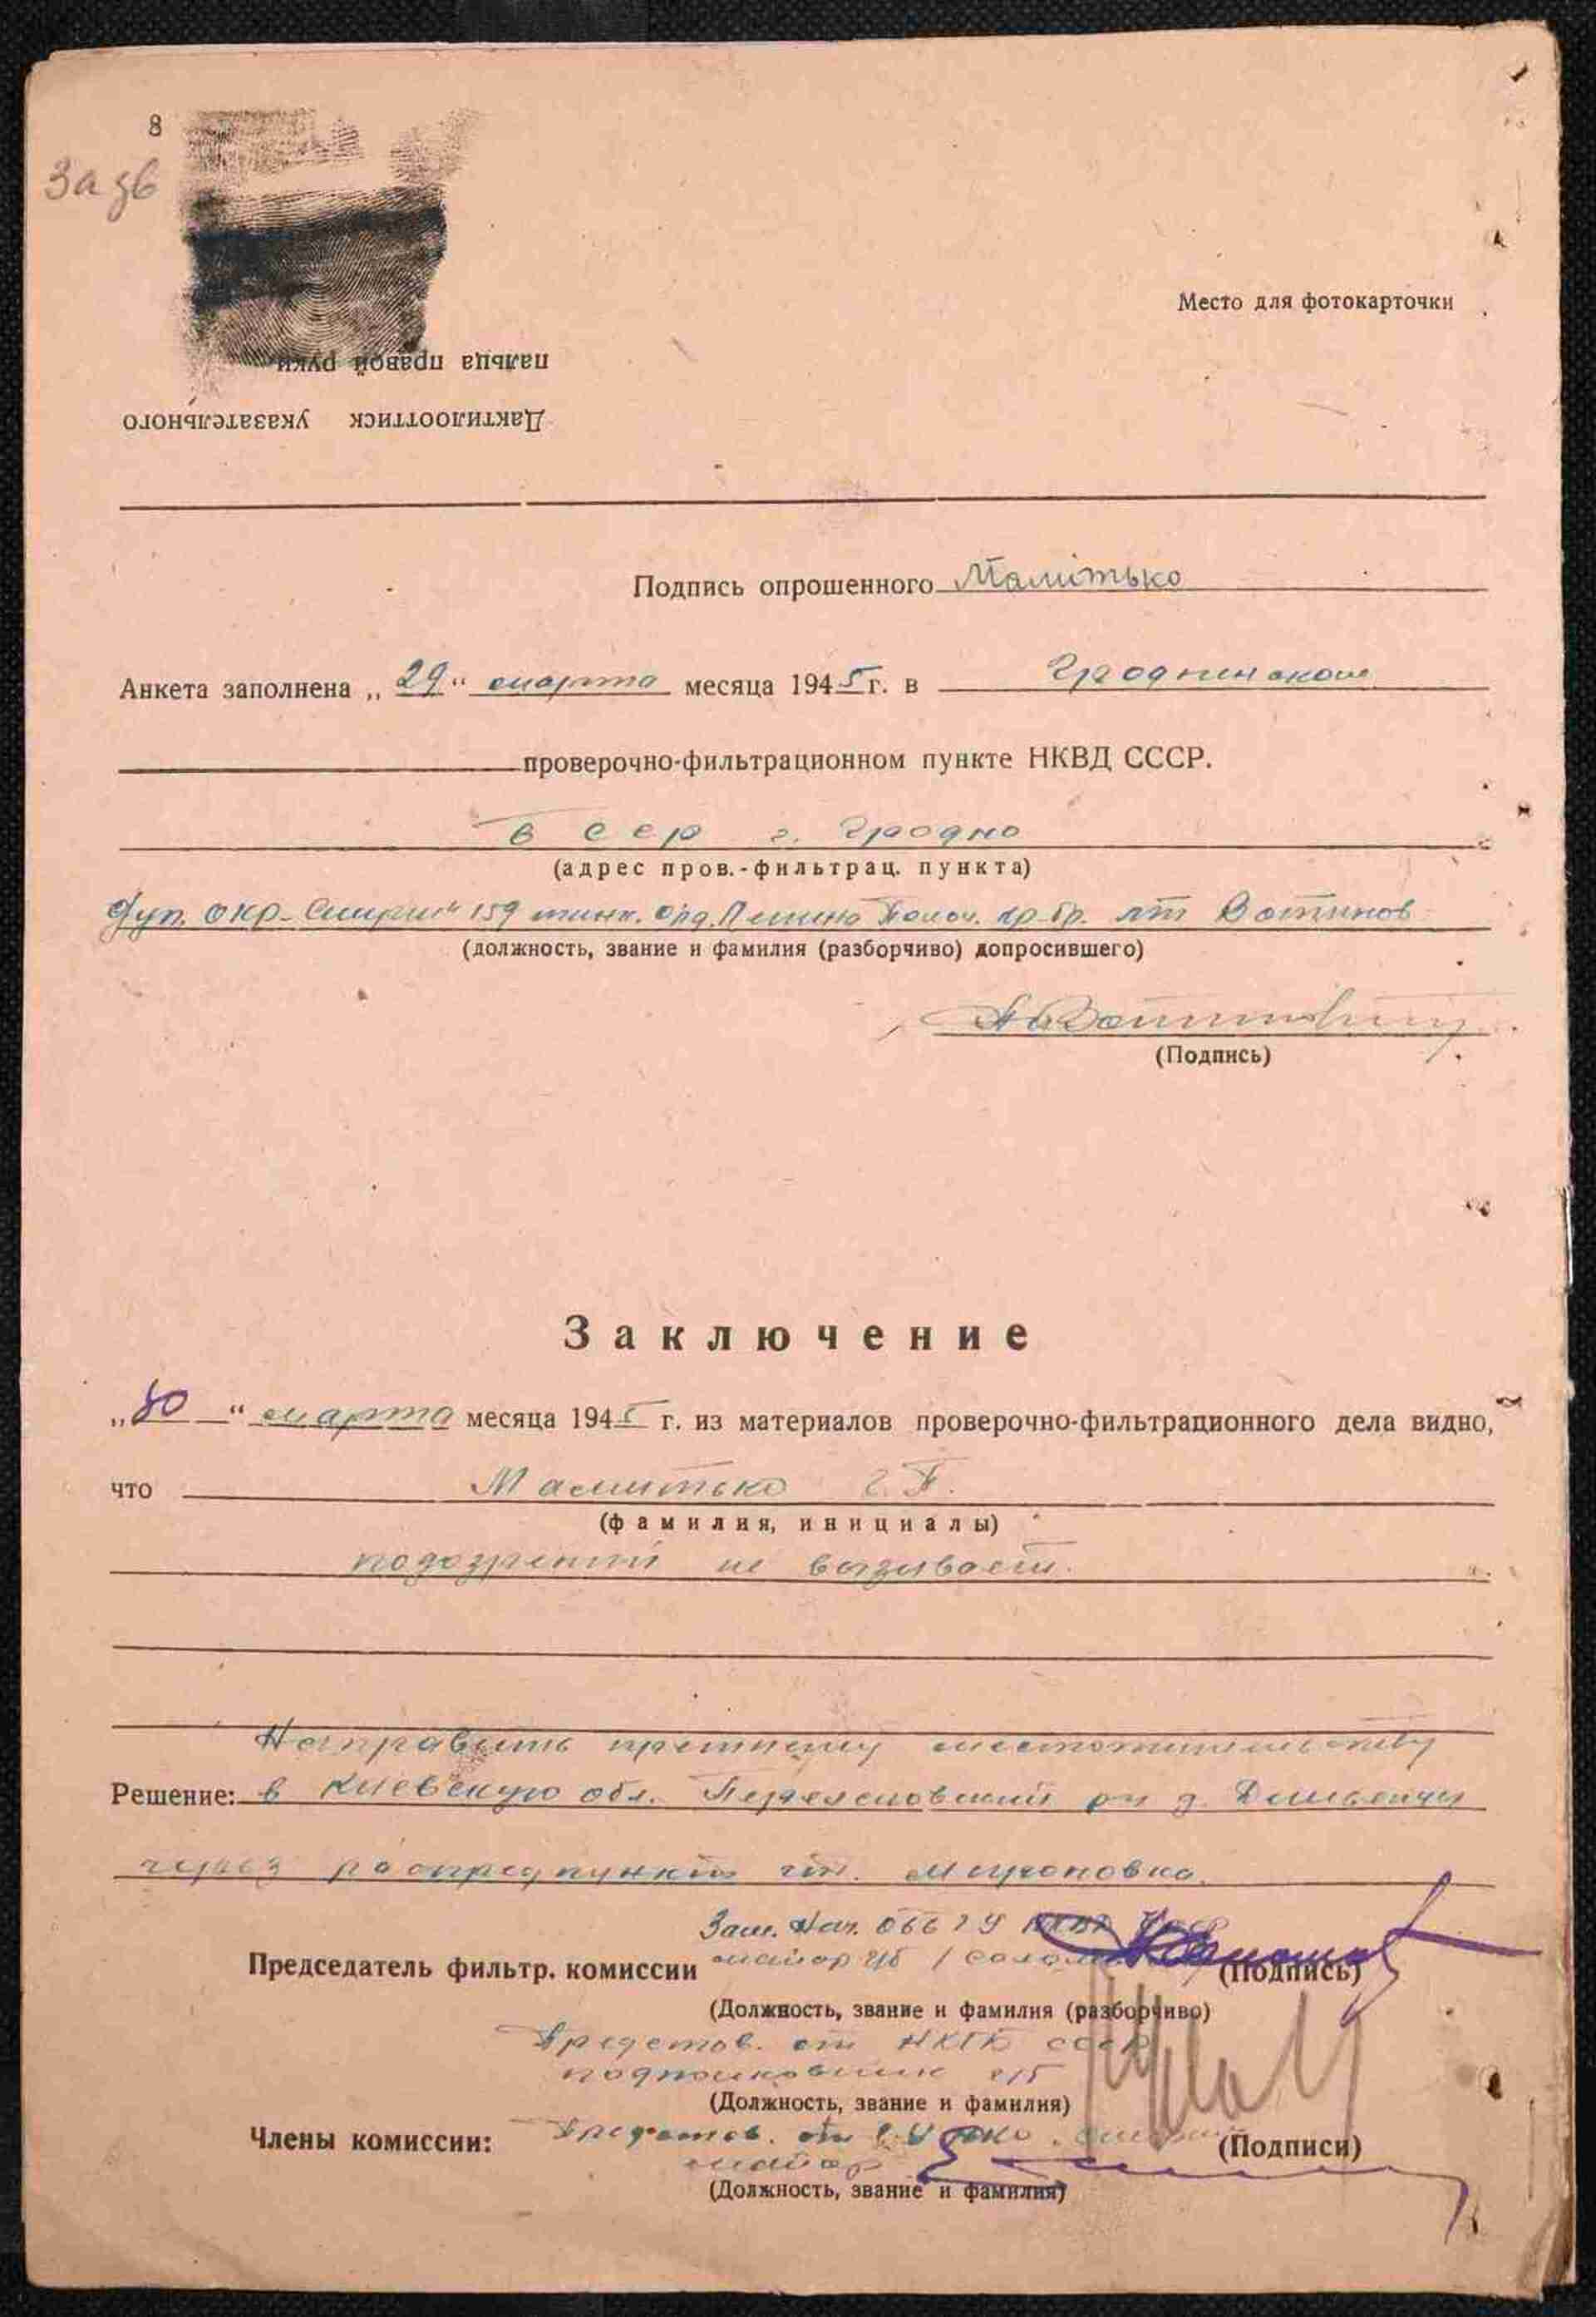 8
За зв
Место для фотокарточки
пальца правой руки
Дактилооттиск указательного
Подпись опрошенного Малитько
Анкета заполнена „ 29 “ марта месяца 1945 г. в Гродненском
проверочно-фильтрационном пункте НКВД СССР.
БССР г. Гродно
(адрес пров.-фильтрац. пункта)
О/уп. ОКР „Смерш“ 159 Орд. Ленина лт Вотинов
(должность, звание и фамилия (разборчиво) допросившего)
(Подпись)
Заключение
„ 30 “ марта месяца 1945 г. из материалов проверочно-фильтрационного дела видно,
что Малитько Г. П.
(фамилия, инициалы)
подозрений не вызывает.
Направить прежнему местожительству
Решение: в Киевскую обл. Переяславский рн д.
через распредпункт ст. Мироновка.
Зам. Нач. НКВД
Председатель фильтр. комиссии майор г/б (Подпись)
(Должность, звание и фамилия (разборчиво)
Представ. от НКГБ СССР
подполковник г/б
(Должность, звание и фамилия)
Члены комиссии: Представ. от (Подписи)
майор
(Должность, звание и фамилия)